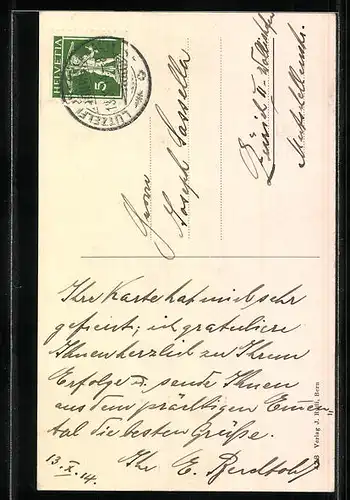 HELVETIA
5
LÜTZELF
Herrn
Joseph Sassella
Zürich II - Wollishofen
Ihre Karte hat mich sehr
gefreut; ich gratuliere
Ihnen herzlich zu Ihrem
Erfolge u. sende Ihnen
aus dem prächtigen Emmen-
tal die besten Grüße.
13. X. 14. Ihr E.
Verlag J. Bern